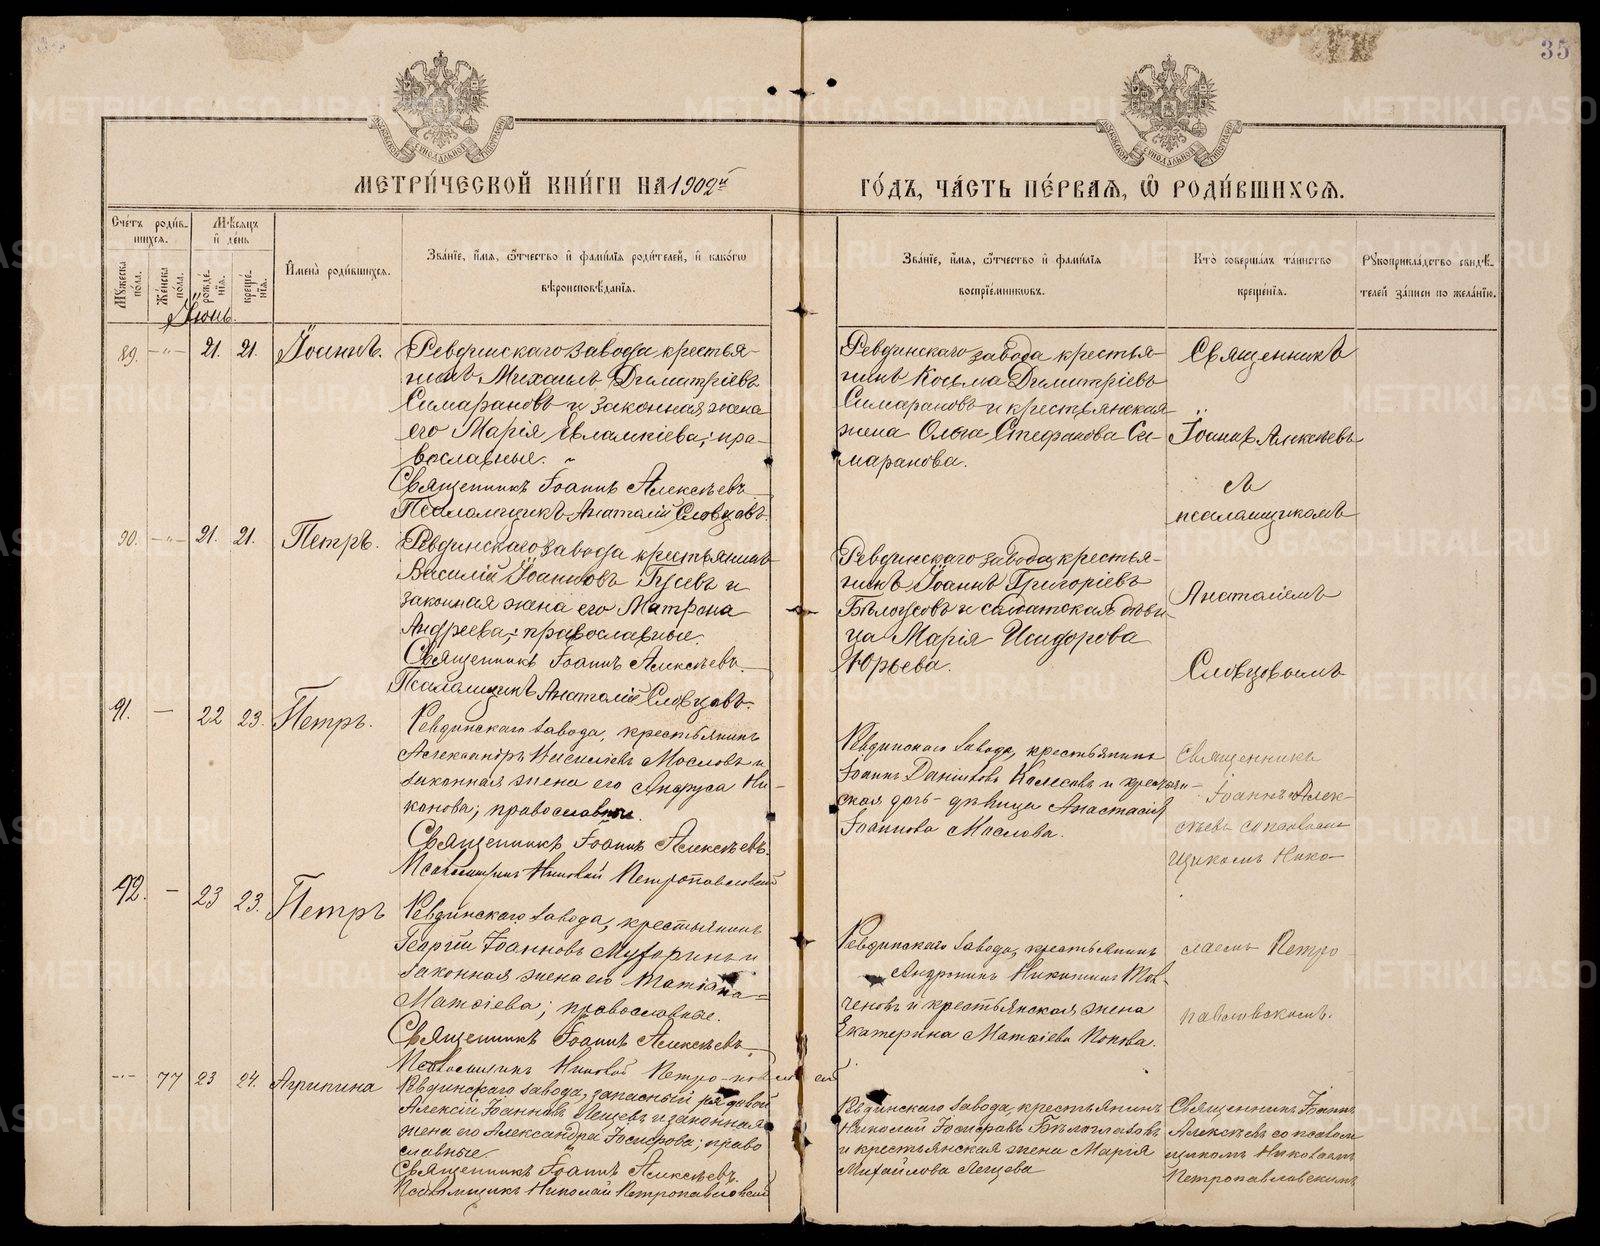 35
МЕТРИ́ЧЕСКОЙ КНИ́ГИ НА 1902й
ГО́ДЪ, ЧА́СТЬ ПЕ́РВАЯ, Ѽ РОДИ́ВШИХСЯ.
Сче́тъ роди́в-
шихся.
Мѣ́сяцъ
и де́нь
Му́жеска по́ла.
Же́нска по́ла.
рожде́-нія.
креще́-нія.
И҆мена̀ роди́вшихся.
Зва́ніе, и҆́мя, ѻ҆́тчество и҆ фами́лія роди́телей, и҆ како́гѡ
вѣроисповѣ́данія.
Зва́ніе, и҆́мя, ѻ҆́тчество и҆ фами́лія
воспріе́мниковъ.
Кто̀ соверша́лъ та́инство
креще́нія.
Рꙋкоприкла́дство свидѣ́-
телей за́писи по жела́нію.
Іюнь.
89. —"— 21. 21. Іоаннъ.
Ревдинскаго завода крестья-
нинъ Михаилъ Димитріевъ
Симарановъ и законная жена
его Марія Евлампіева; пра-
вославные.
Священникъ Іоаннъ Алексѣевъ
Псаломщикъ Анатолій Словцовъ.
Ревдинскаго завода крестья-
нинъ Косьма Димитріевъ
Симарановъ и крестьянская
жена Ольга Стефанова Си-
маранова.
Священникъ
Іоаннъ Алексѣевъ
съ
псаломщикомъ
Анатоліемъ
Словцовымъ
90. —"— 21. 21. Петръ.
Ревдинскаго завода крестьянинъ
Василій Іоанновъ Гусевъ и
законная жена его Матрона
Андреева; православные.
Священникъ Іоаннъ Алексѣевъ.
Псаломщикъ Анатолій Словцовъ.
Ревдинскаго завода крестья-
нинъ Іоаннъ Григоріевъ
Бѣлоусовъ и солдатская дѣви-
ца Марія Исидорова
Юрьева.
91. — 22 23. Петръ.
Ревдинскаго завода, крестьянинъ
Александръ Масловъ и
законная жена его Ни-
канова; православные.
Священникъ Іоаннъ Алексѣевъ.
Псаломщикъ Николай Петропавловскій
Ревдинскаго завода, крестьянинъ
Іоаннъ Даніиловъ Колесовъ и крестьян-
ская дочь-дѣвица Анастасія
Іоаннова Маслова.
Священникъ
Іоаннъ Алек-
сѣевъ съ псалом-
щикомъ Нико-
лаемъ Петро
павловскимъ.
92. — 23 23. Петръ
Ревдинскаго завода, крестьянинъ
Георгій Іоанновъ и
законная жена его Татіана
Матѳіева; православные.
Священникъ Іоаннъ Алексѣевъ
Псаломщикъ Николай Петропавловскій
Ревдинскаго завода, крестьянинъ
Никитинъ
и крестьянская жена
Екатерина Матѳіева Попова.
— 77 23 24. Агрипина
Ревдинскаго завода, запасный рядовой
Алексій Іоанновъ Лещевъ и законная
жена его Александра Іосифова; право
славные.
Священникъ Іоаннъ Алексѣевъ.
Псаломщикъ Николай Петропавловскій
Ревдинскаго завода, крестьянинъ
Николай Іосифовъ Бѣлоглазовъ
и крестьянская жена Марія
Михайлова Лещева
Священникъ Іоаннъ
Алексѣевъ съ псалом
щикомъ Николаемъ
Петропавловскимъ